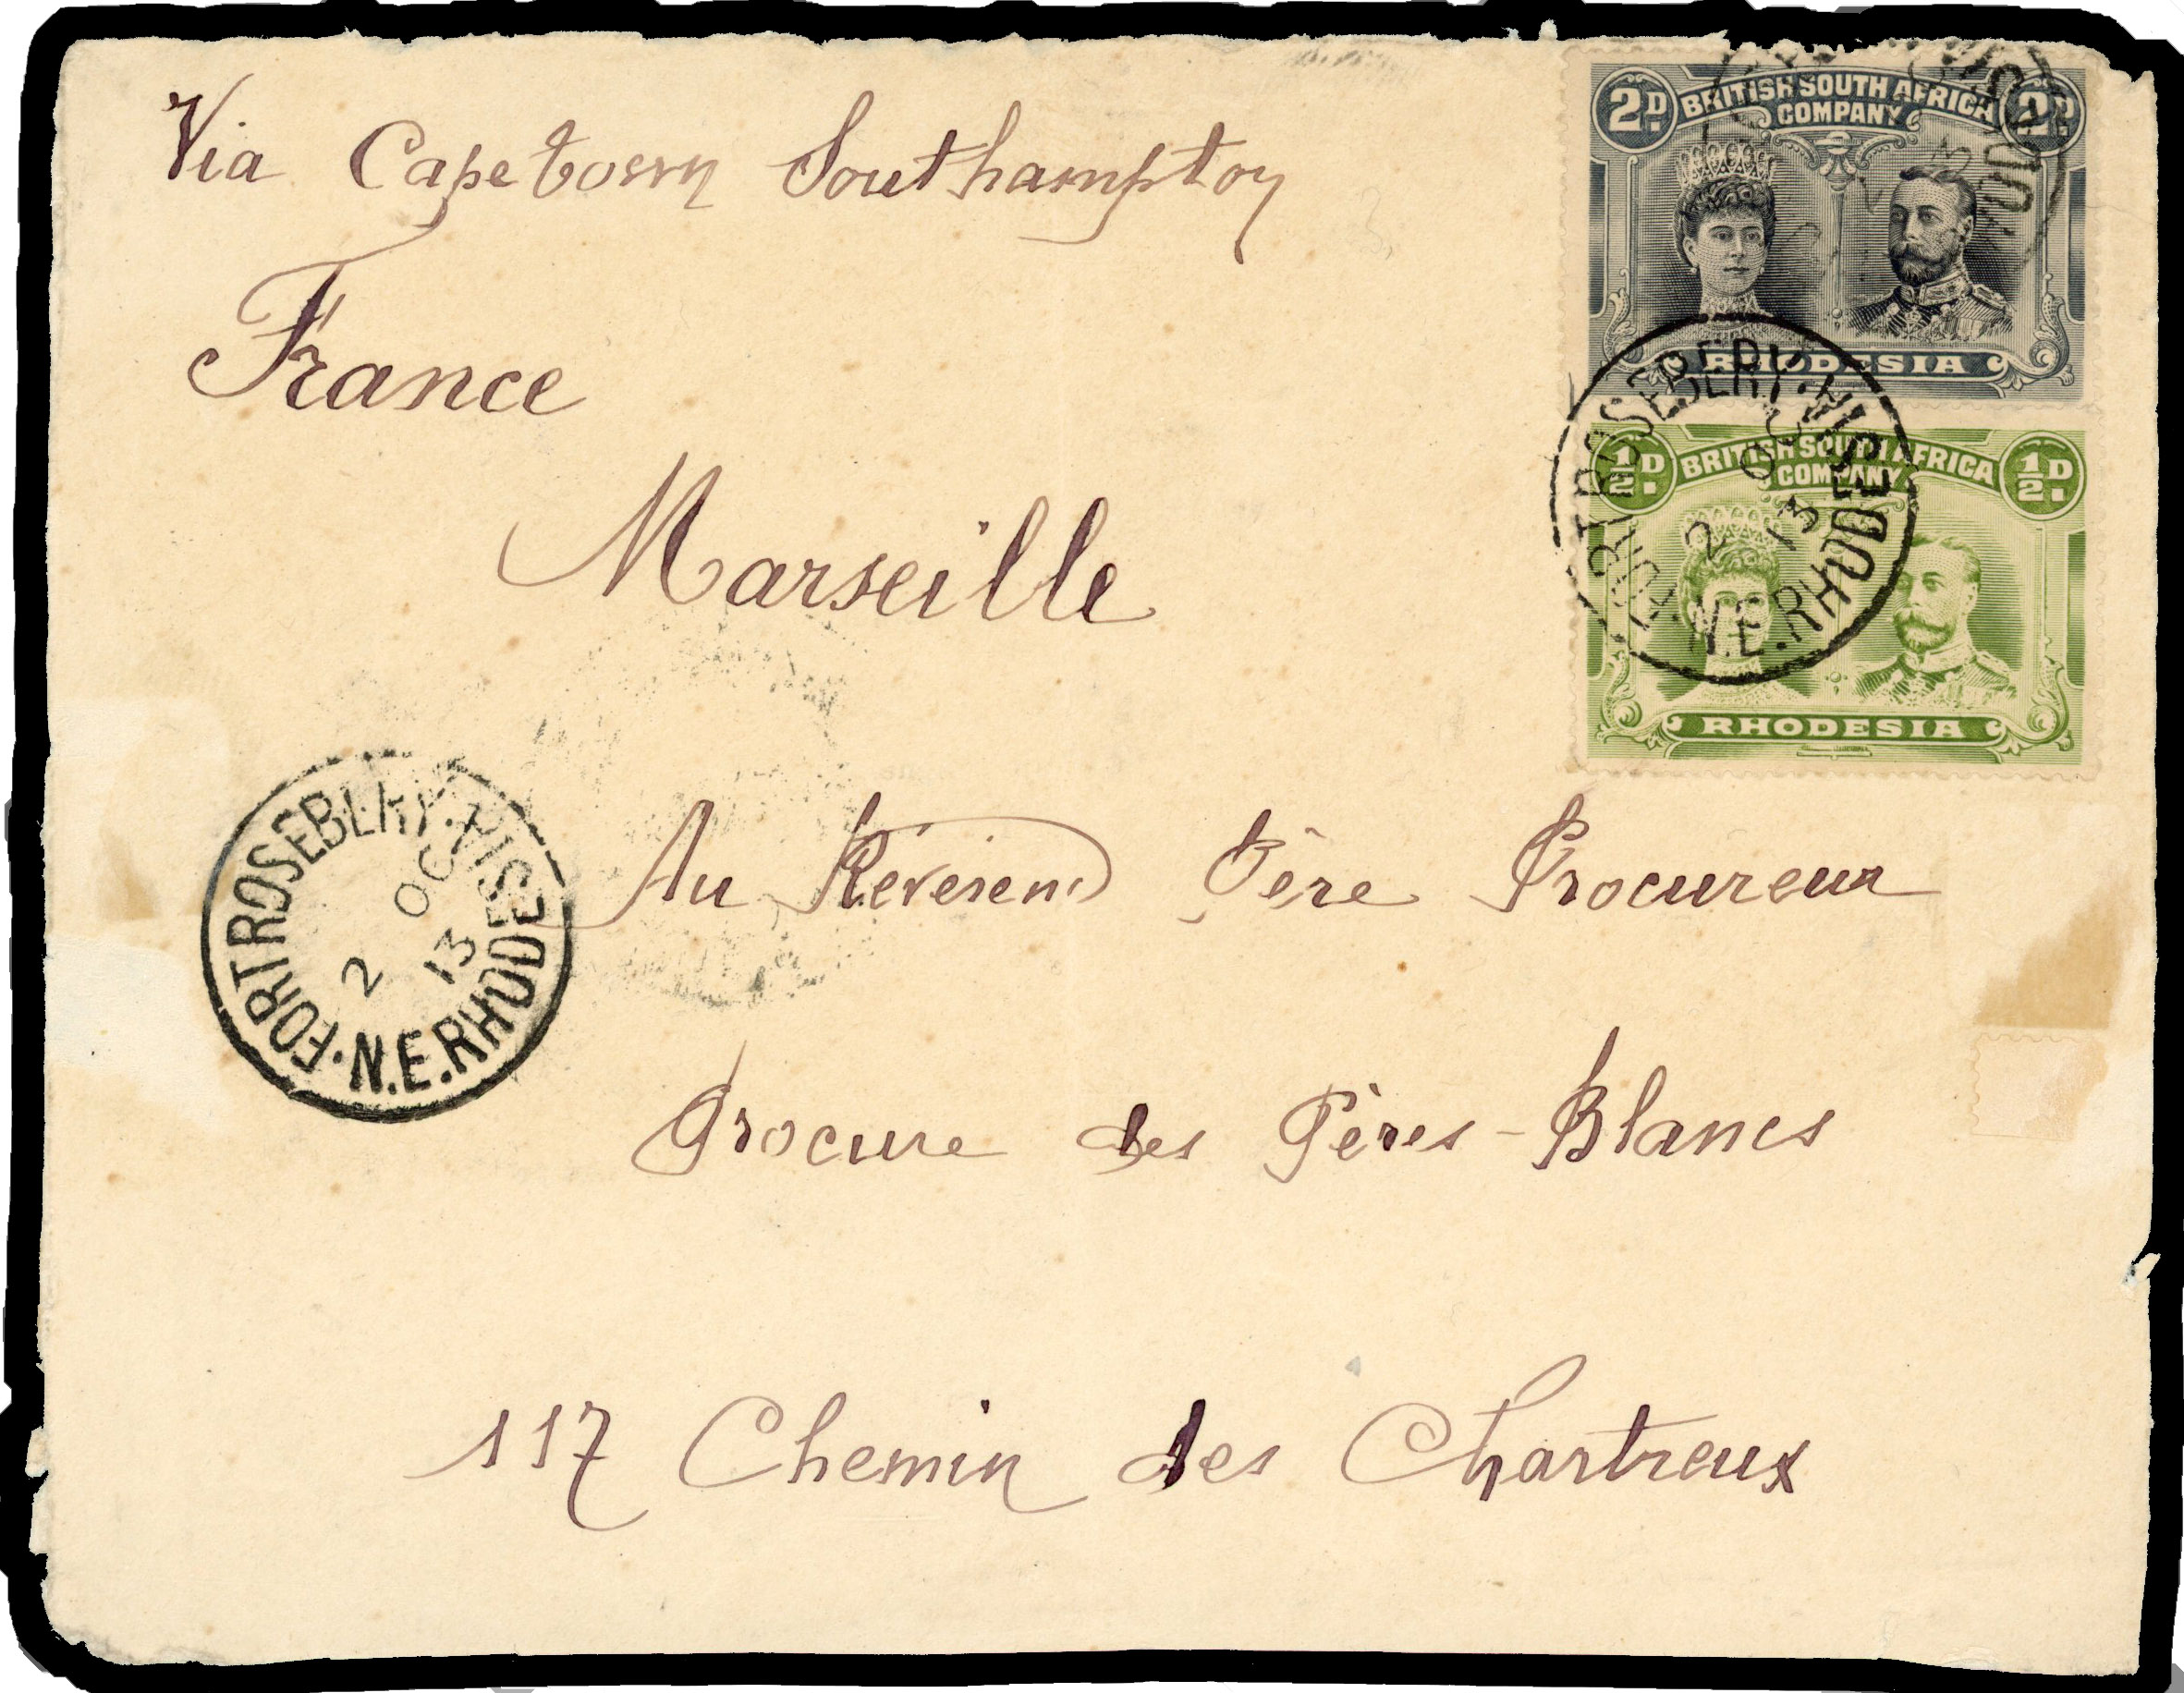 Via Capetown Southampton
France
Marseille
Au Révérend Père Procureur
Procure des Pères-Blancs
117 Chemin des Chartreux
2D. BRITISH SOUTH AFRICA 2D.
COMPANY
RHODESIA
½D. BRITISH SOUTH AFRICA ½D.
COMPANY
RHODESIA
FORT ROSEBERY
N.E. RHODESIA
2 OC
13
·FORTROSEBERY·
N.E.RHODESIA
2 OC
13